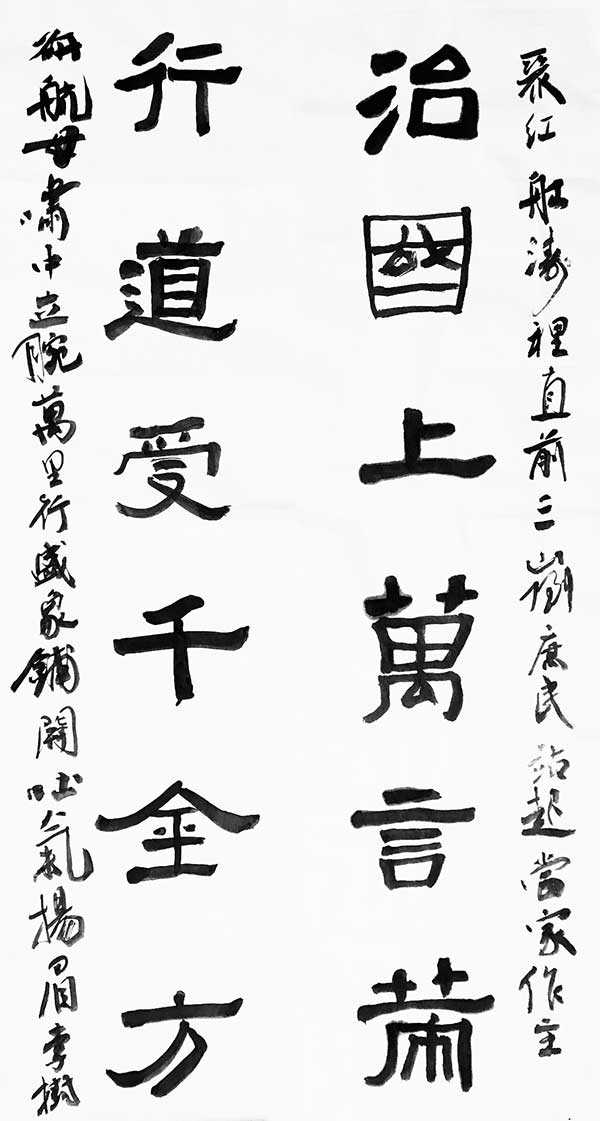 聚紅船濤裡直前三山倒庶民站起當家作主
治國上萬言策
行道受千金方
航母嘯中立腕萬里行盛象鋪開吐氣揚眉李樹